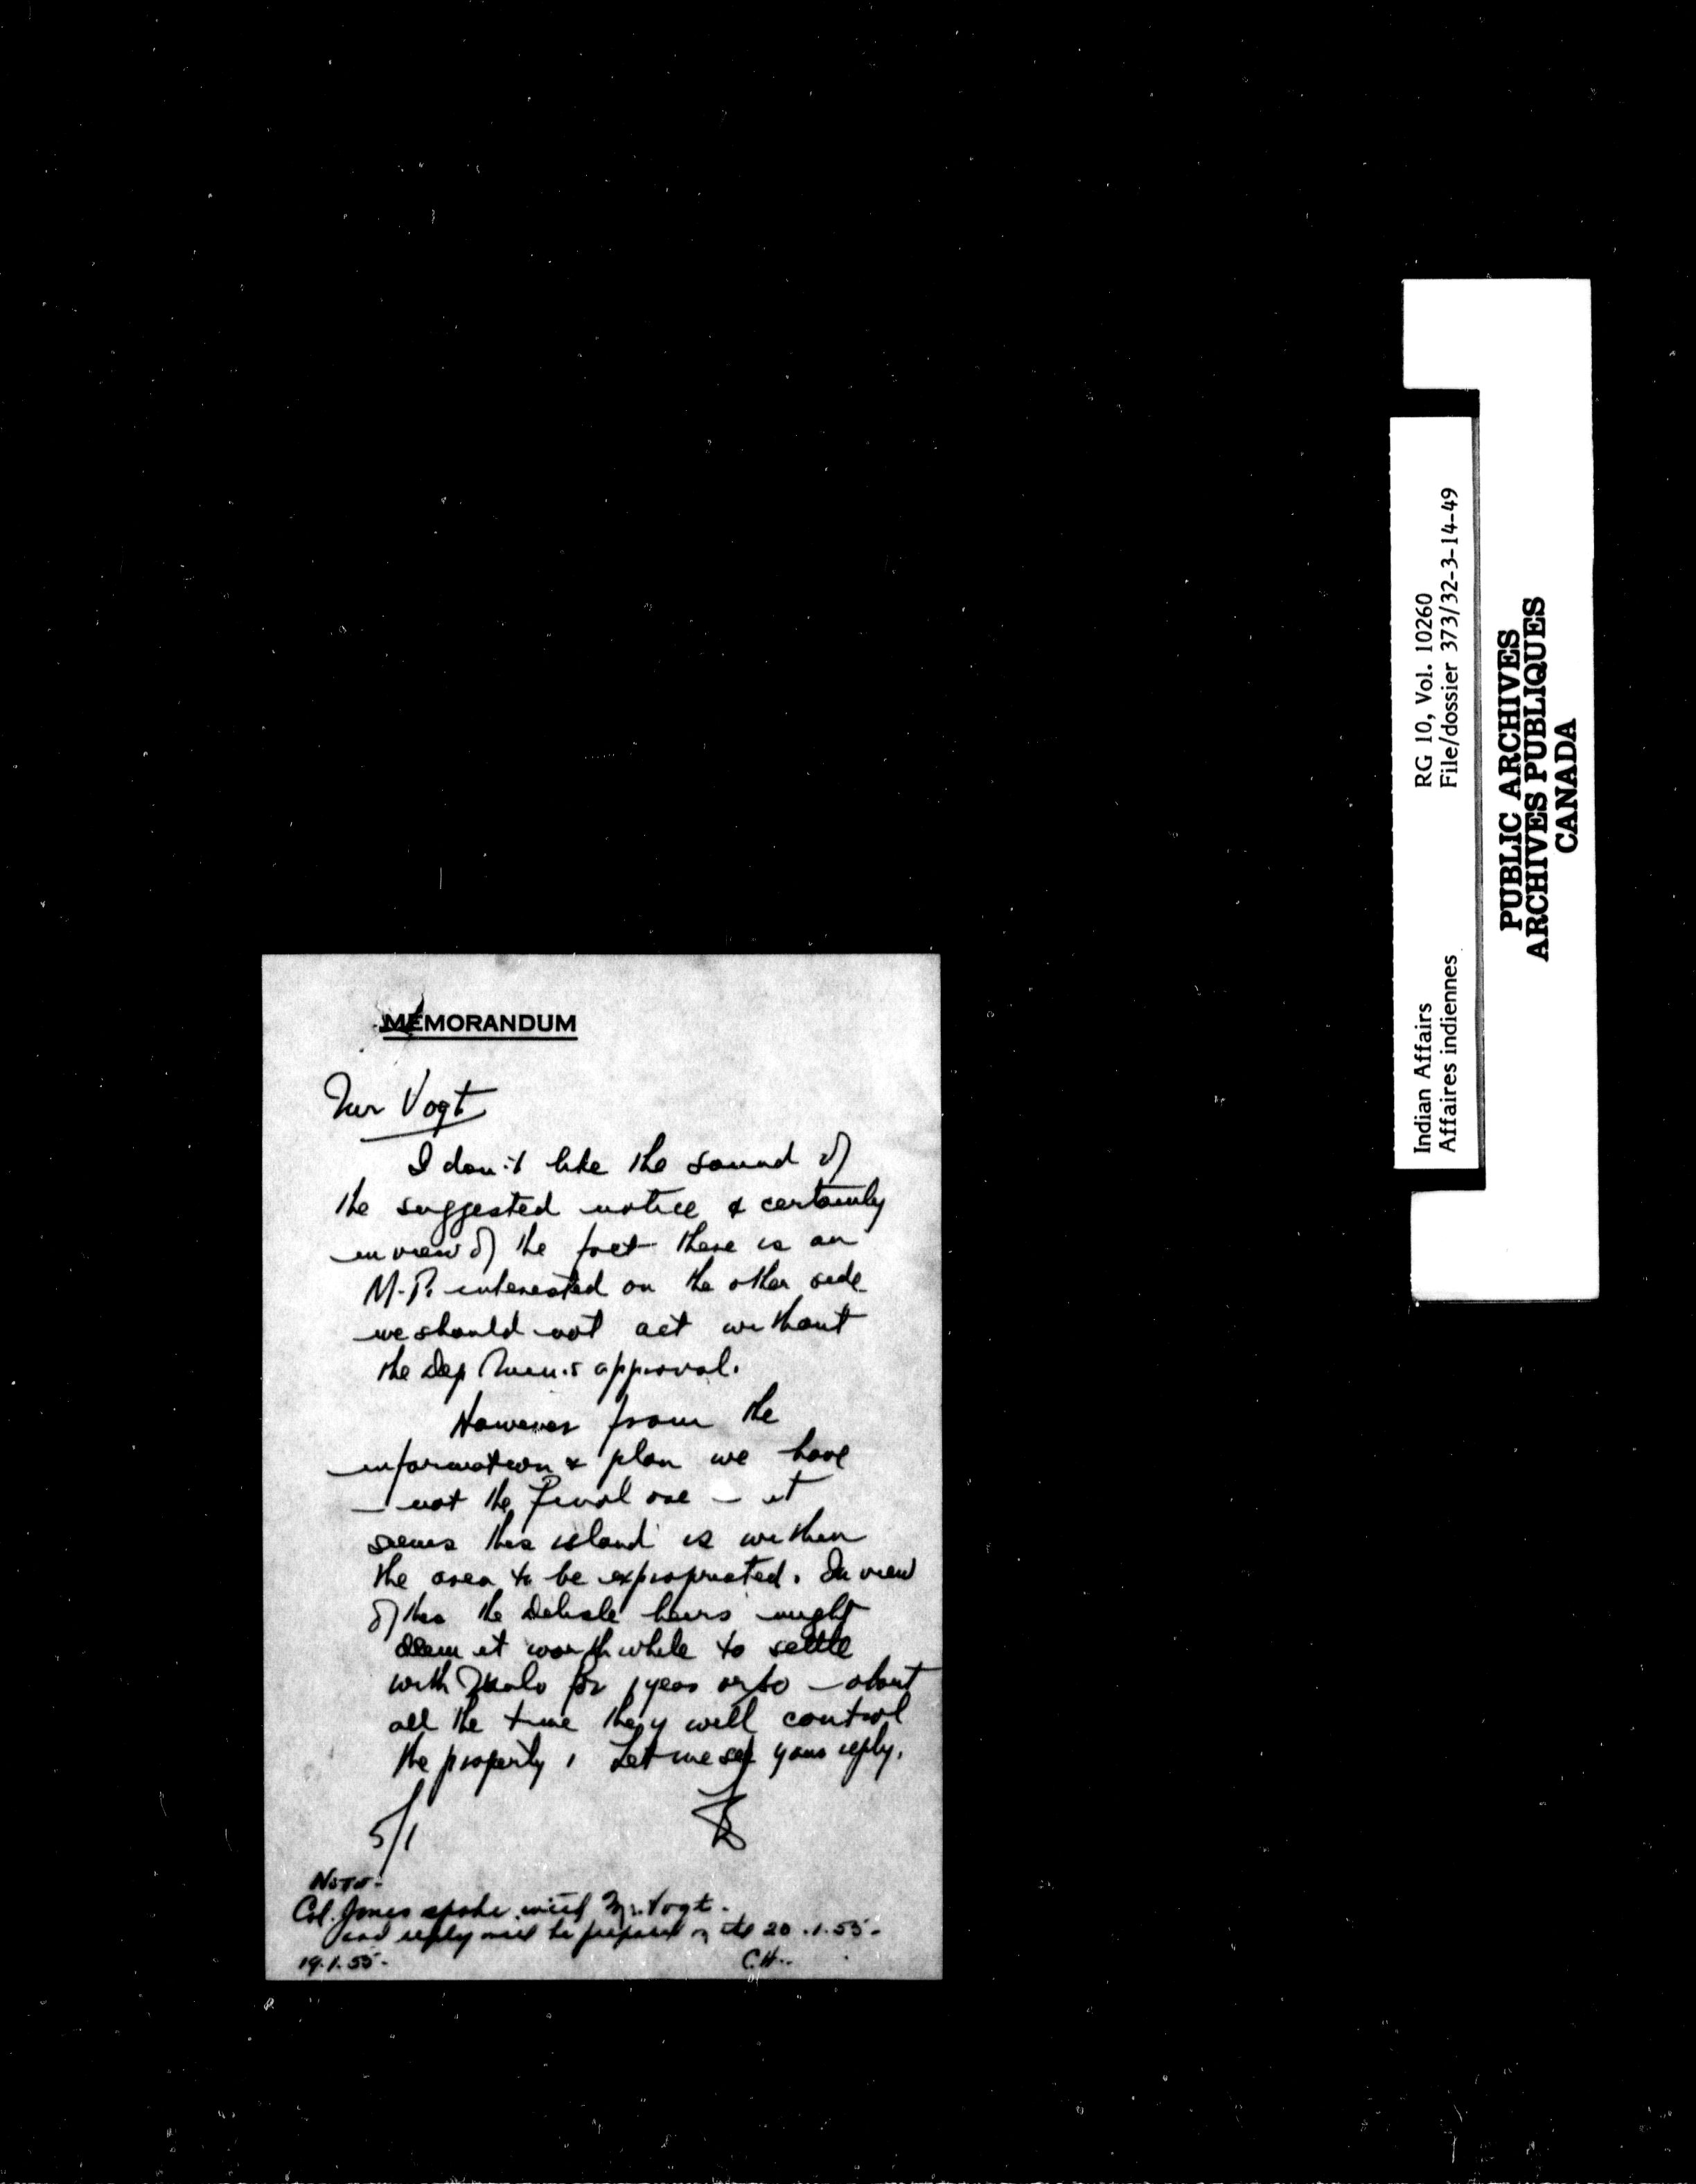 MEMORANDUM
Mr Vogt
I don't like the sound of
the suggested notice & certainly
in view of the fact there is an
M.P. interested on the other side
we should not act without
the Dep Min's approval.
However from the
information & plan we have
– not the final one – it
seems this island is within
the area to be expropriated. In view
of this the Delisle heirs might
deem it worth while to settle
with for 1 year or so – about
all the time they will control
the property. Let me see your reply.
5/1
Note-
Col. Jones spoke with Mr. Vogt-
and reply will be prepared on the 20.1.55-
19.1.55-
C.H.
Indian Affairs
Affaires indiennes
RG 10, Vol. 10260
File/dossier 373/32-3-14-49
PUBLIC ARCHIVES
ARCHIVES PUBLIQUES
CANADA